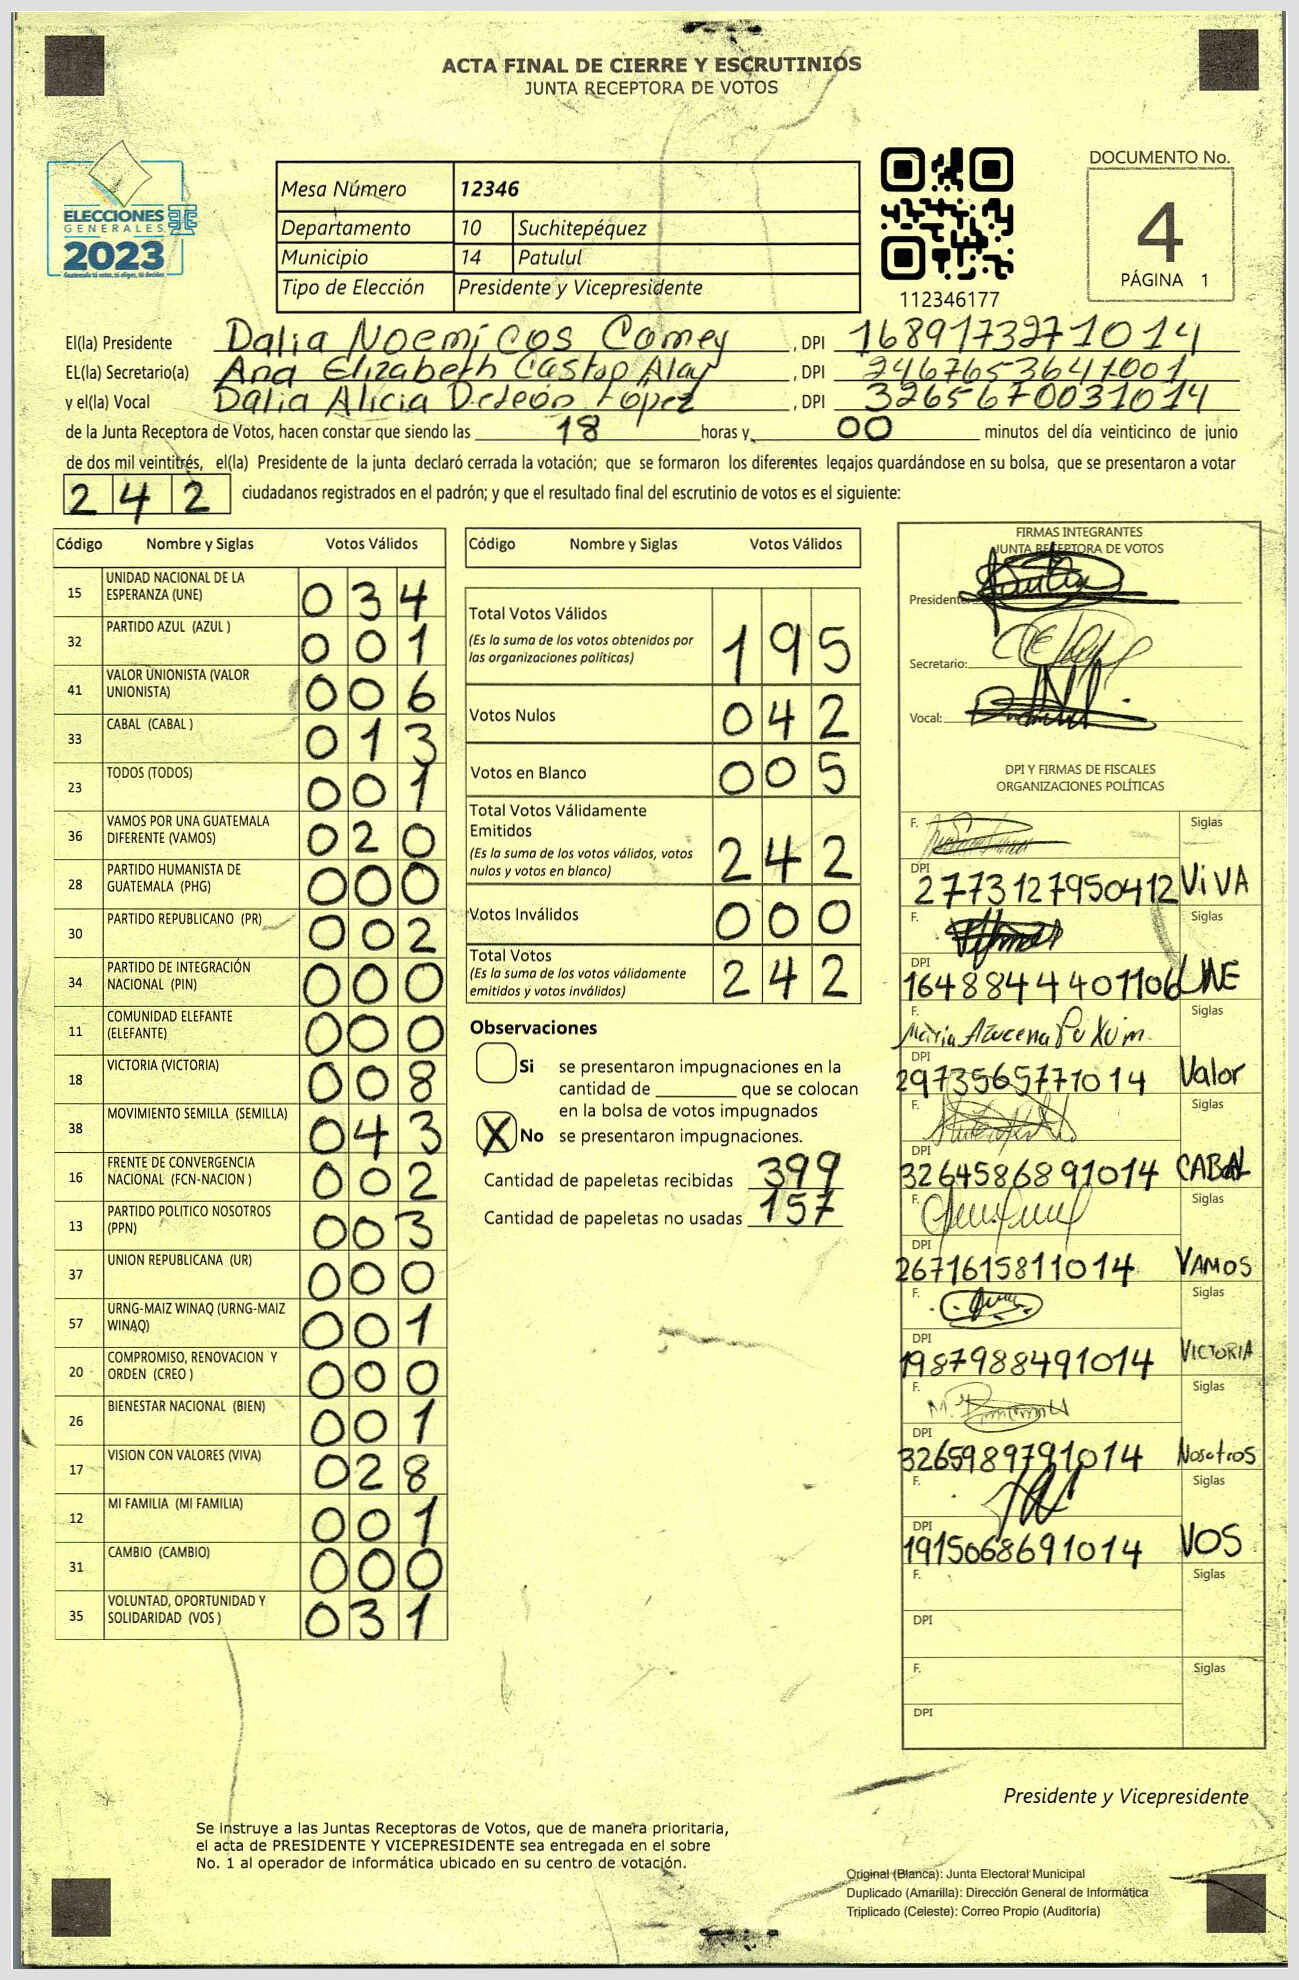 ACTA FINAL DE CIERRE Y ESCRUTINIOS
JUNTA RECEPTORA DE VOTOS
ELECCIONES
GENERALES
2023
Mesa Número 12346
Departamento 10 Suchitepéquez
Municipio 14 Patulul
Tipo de Elección Presidente y Vicepresidente
112346177
DOCUMENTO No.
4
PÁGINA 1
El(la) Presidente Dalia Noemí Cos Comey, DPI 1689173271014
EL(la) Secretario(a) Ana Elizabeth Castop Alay, DPI 2467653641001
y el(la) Vocal Dalia Alicia DeLeón López, DPI 3265670031014
de la Junta Receptora de Votos, hacen constar que siendo las 18 horas y 00 minutos del día veinticinco de junio
de dos mil veintitrés, el(la) Presidente de la junta declaró cerrada la votación; que se formaron los diferentes legajos guardándose en su bolsa, que se presentaron a votar
242 ciudadanos registrados en el padrón; y que el resultado final del escrutinio de votos es el siguiente:
Código Nombre y Siglas Votos Válidos
15 UNIDAD NACIONAL DE LA ESPERANZA (UNE) 034
32 PARTIDO AZUL (AZUL ) 001
41 VALOR UNIONISTA (VALOR UNIONISTA) 006
33 CABAL (CABAL ) 013
23 TODOS (TODOS) 001
36 VAMOS POR UNA GUATEMALA DIFERENTE (VAMOS) 020
28 PARTIDO HUMANISTA DE GUATEMALA (PHG) 000
30 PARTIDO REPUBLICANO (PR) 002
34 PARTIDO DE INTEGRACIÓN NACIONAL (PIN) 000
11 COMUNIDAD ELEFANTE (ELEFANTE) 000
18 VICTORIA (VICTORIA) 008
38 MOVIMIENTO SEMILLA (SEMILLA) 043
16 FRENTE DE CONVERGENCIA NACIONAL (FCN-NACION ) 002
13 PARTIDO POLITICO NOSOTROS (PPN) 003
37 UNION REPUBLICANA (UR) 000
57 URNG-MAIZ WINAQ (URNG-MAIZ WINAQ) 001
20 COMPROMISO, RENOVACION Y ORDEN (CREO ) 000
26 BIENESTAR NACIONAL (BIEN) 001
17 VISION CON VALORES (VIVA) 028
12 MI FAMILIA (MI FAMILIA) 001
31 CAMBIO (CAMBIO) 000
35 VOLUNTAD, OPORTUNIDAD Y SOLIDARIDAD (VOS ) 031
Código Nombre y Siglas Votos Válidos
Total Votos Válidos 195
(Es la suma de los votos obtenidos por
las organizaciones políticas)
Votos Nulos 042
Votos en Blanco 005
Total Votos Válidamente
Emitidos 242
(Es la suma de los votos válidos, votos
nulos y votos en blanco)
Votos Inválidos 000
Total Votos 242
(Es la suma de los votos válidamente
emitidos y votos inválidos)
Observaciones
Si se presentaron impugnaciones en la
cantidad de ________ que se colocan
en la bolsa de votos impugnados
X No se presentaron impugnaciones.
Cantidad de papeletas recibidas 399
Cantidad de papeletas no usadas 157
FIRMAS INTEGRANTES
JUNTA RECEPTORA DE VOTOS
Presidente:
Secretario:
Vocal:
DPI Y FIRMAS DE FISCALES
ORGANIZACIONES POLÍTICAS
F. Siglas
DPI 2773127950412 ViVA
F. Siglas
DPI 1648844401106 UNE
F. Maria Azucena Pu Xum. Siglas
DPI 2973565771014 Valor
F. Siglas
DPI 3264586891014 CABAL
F. Siglas
DPI 2671615811014 VAMOS
F. Siglas
DPI 1987988491014 VICTORIA
F. Siglas
DPI 3265989791014 Nosotros
F. Siglas
DPI 1915068691014 VOS
F. Siglas
DPI
F. Siglas
DPI
Presidente y Vicepresidente
Se instruye a las Juntas Receptoras de Votos, que de manera prioritaria,
el acta de PRESIDENTE Y VICEPRESIDENTE sea entregada en el sobre
No. 1 al operador de informática ubicado en su centro de votación.
Original (Blanca): Junta Electoral Municipal
Duplicado (Amarilla): Dirección General de Informática
Triplicado (Celeste): Correo Propio (Auditoría)